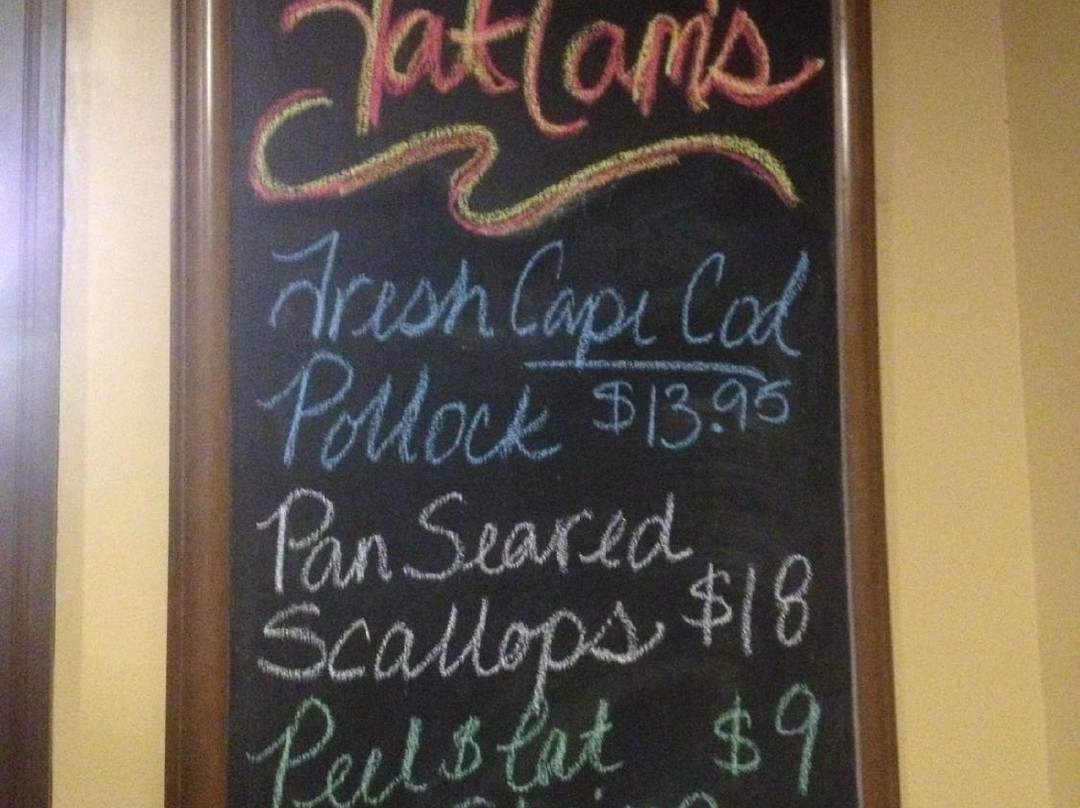 Fat Cam's
Fresh Cape Cod
Pollock $13.95
Pan Seared
Scallops $18
Peel $ Eat $9